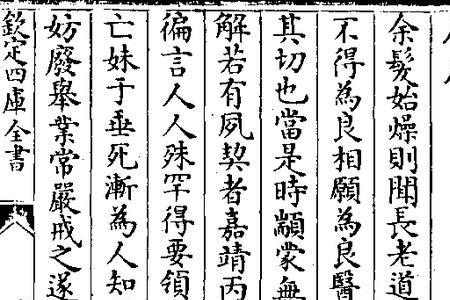 余髮始燥則聞長老道
不得為良相願為良醫
其切也當是時顓蒙無
解若有夙契者嘉靖丙
徧言人人殊罕得要領
亡妹于垂死漸為人知
妨廢舉業常嚴戒之遂
欽定四庫全書